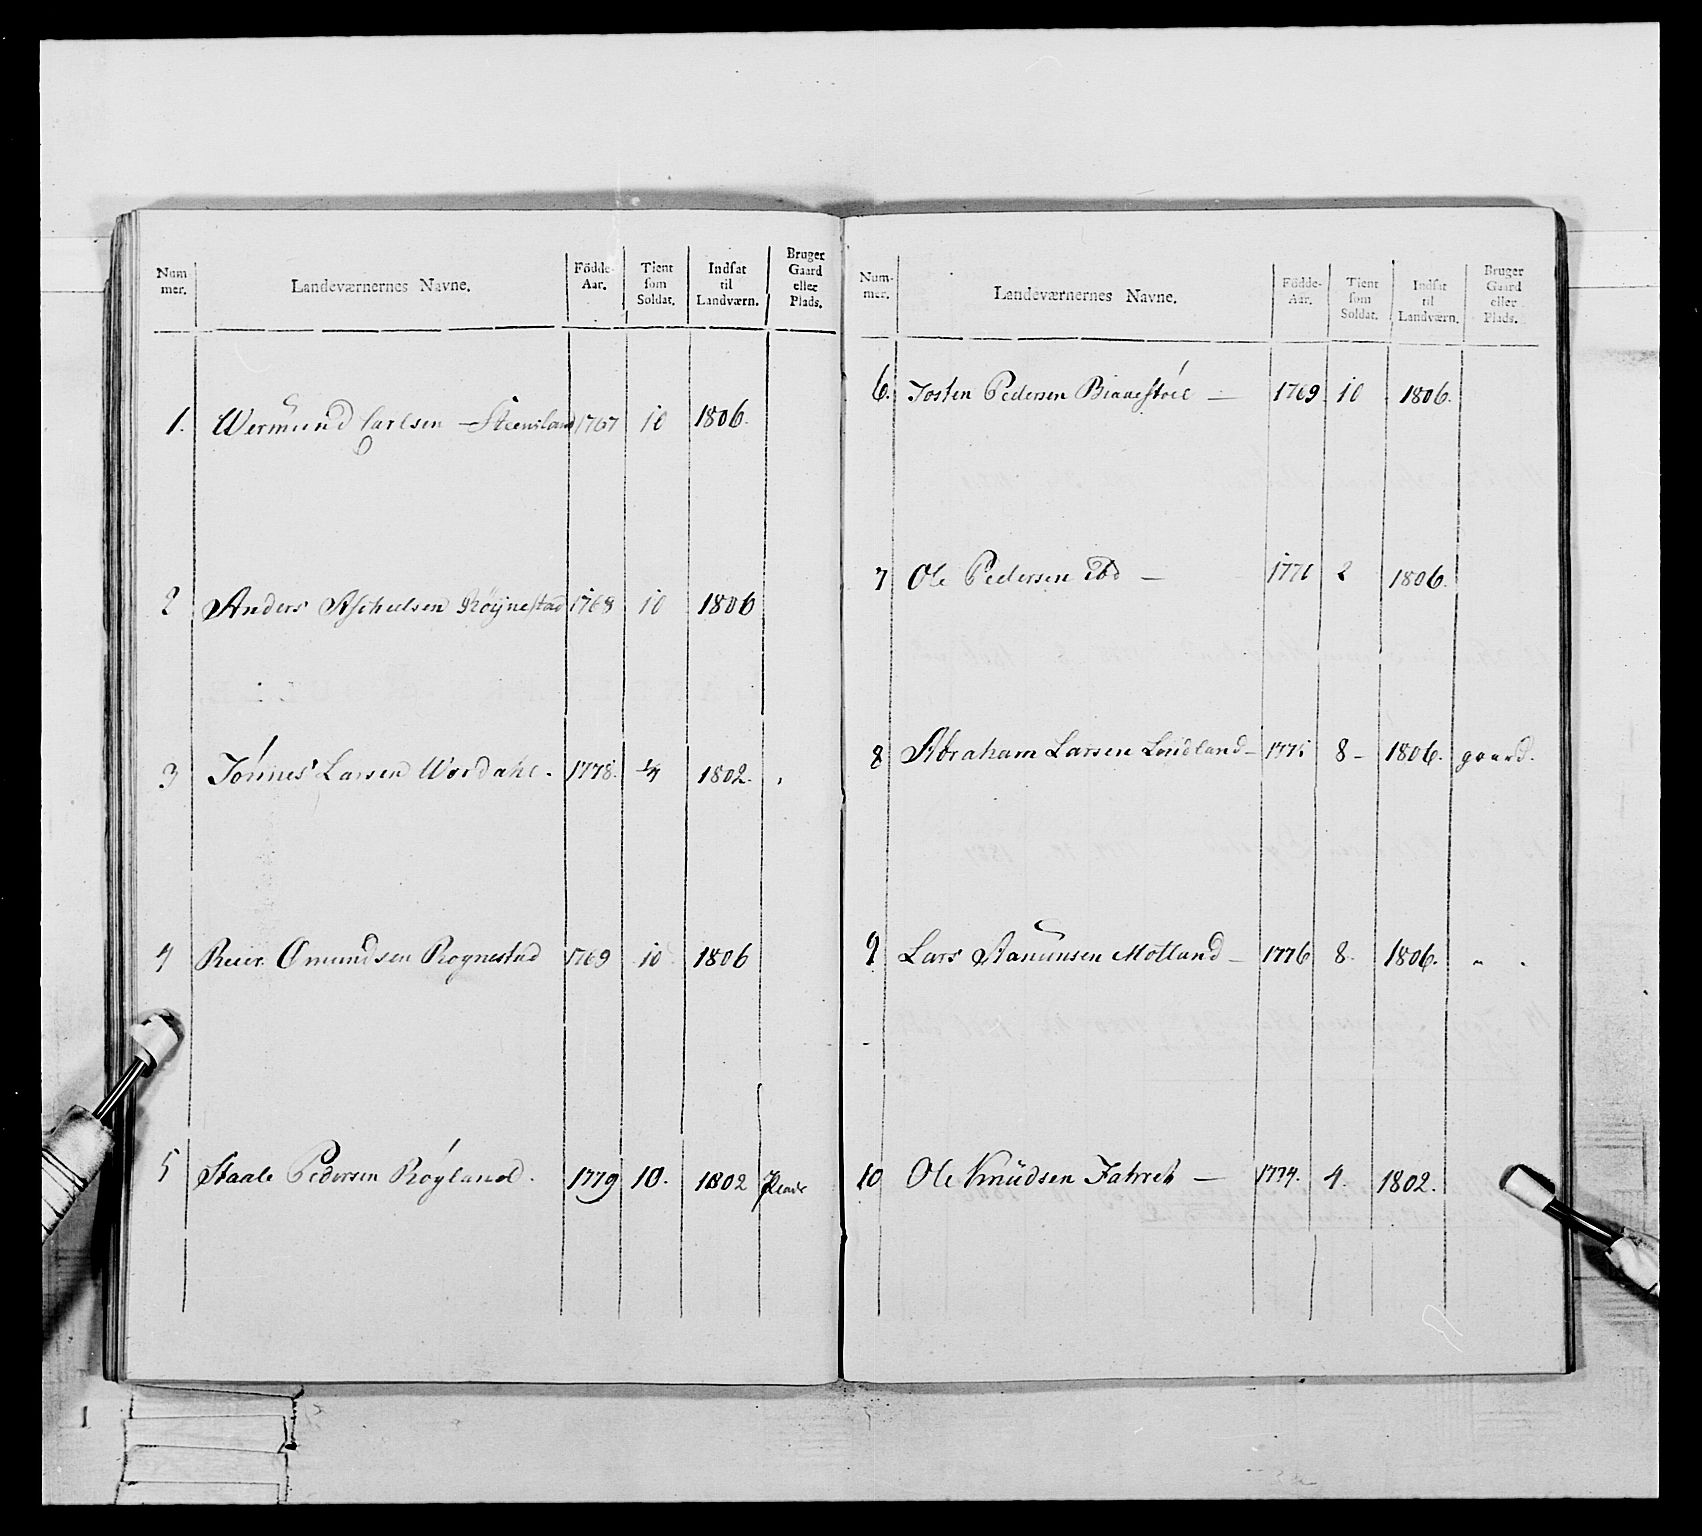 Num mer. Landeværnernes Navne. Födde-Aar. Tient som Soldat. Indsat til Landværn. Bruger Gaard eller Plads.
1. Wermund Carlsen - Steensland 1767 10 1806.
2 Anders Aschelsen Röynestad 1768 10 1806
3 Tönnes Larsen Wordahl. 1778. 1802.
4 Reier Omundsen Roynestad 1769 10 1806
5 Staale Pedersen Röyland. 1779 10. 1802 Plads
Num-mer. Landeværnernes Navne. Födde-Aar. Tient som Soldat. Indsat til Landværn. Bruger Gaard eller Plads.
6. Josten Pedersen — 1769 10 1806.
7 Ole Pedersen ibd — 1771 2 1806.
8 Abraham Larsen Lindland - 1775 8 - 1806. gaard.
9 Lars Aanunsen Motland - 1776 8. 1806. " "
10 Ole Knudsen — 1774. 4. 1802.